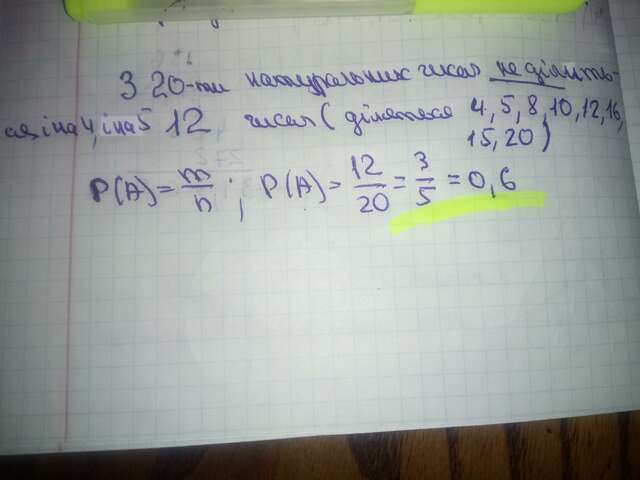 З 20-ти натуральних чисел не ділить-
ся, і на 4, і на 5 12 чисел ( діляться 4, 5, 8, 10, 12, 16,
15, 20)
P(A) = m/n ; P(A) = 12/20 = 3/5 = 0,6